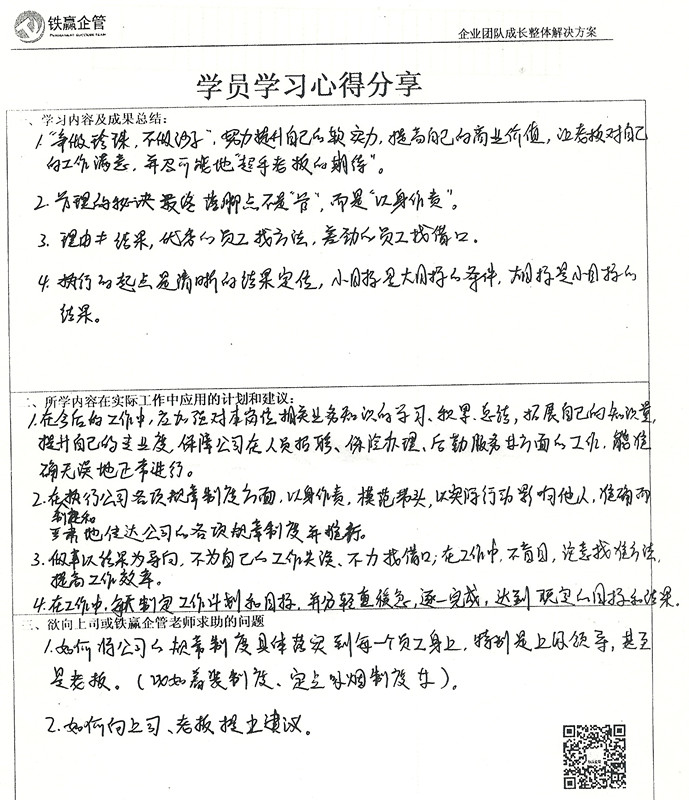 铁赢企管
企业团队成长整体解决方案
学员学习心得分享
一、学习内容及成果总结：
1."争做珍珠，不做沙子"，努力提升自己的软实力，提高自己的商业价值，让老板对自己
的工作满意，并尽可能地"超乎老板的期待"。
2.管理的秘诀最终落脚点不是"管"，而是"以身作责"。
3.理由≠结果，优秀的员工找方法，差劲的员工找借口。
4.执行的起点是清晰的结果定位，小目标是大目标的条件，大目标是小目标的
结果。
二、所学内容在实际工作中应用的计划和建议：
1.在今后的工作中，应加强对本岗位相关业务知识的学习、积累、总结，拓展自己的知识量，
提升自己的专业度，保障公司在人员招聘、保险办理、后勤服务等方面的工作，能准
确无误地正常进行。
2.在执行公司各项规章制度方面，以身作责，模范带头，以实际行动影响他人，准确而
制度和
地传达公司的各项规章制度并推行。
3.做事以结果为导向，不为自己的工作失误、不力找借口；在工作中，不盲目，注意找准方法，
提高工作效率。
4.在工作中，每天制定工作计划和目标，并分轻重缓急，逐一完成，达到既定的目标和结果。
三、欲向上司或铁赢企管老师求助的问题
1.如何将公司的规章制度具体落实到每一个员工身上，特别是上级领导，甚至
是老板。（比如着装制度、定点吸烟制度等）。
2.如何向上司、老板提出建议。